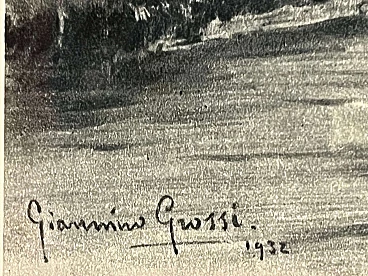 Giannino Grossi.
1932